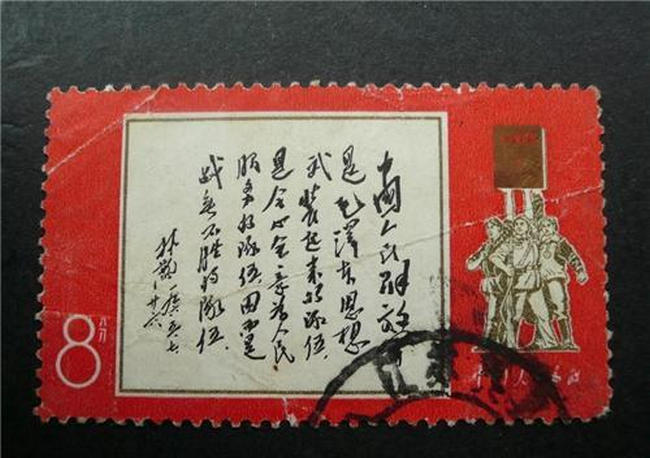 中國人民解放军
是毛澤东思想
武裝起来的隊伍,
是全心全意为人民
服务的隊伍,因而是
战无不胜的隊伍.
林彪 一九六五、七、
廿六
8 八分
中国人民邮政
江苏